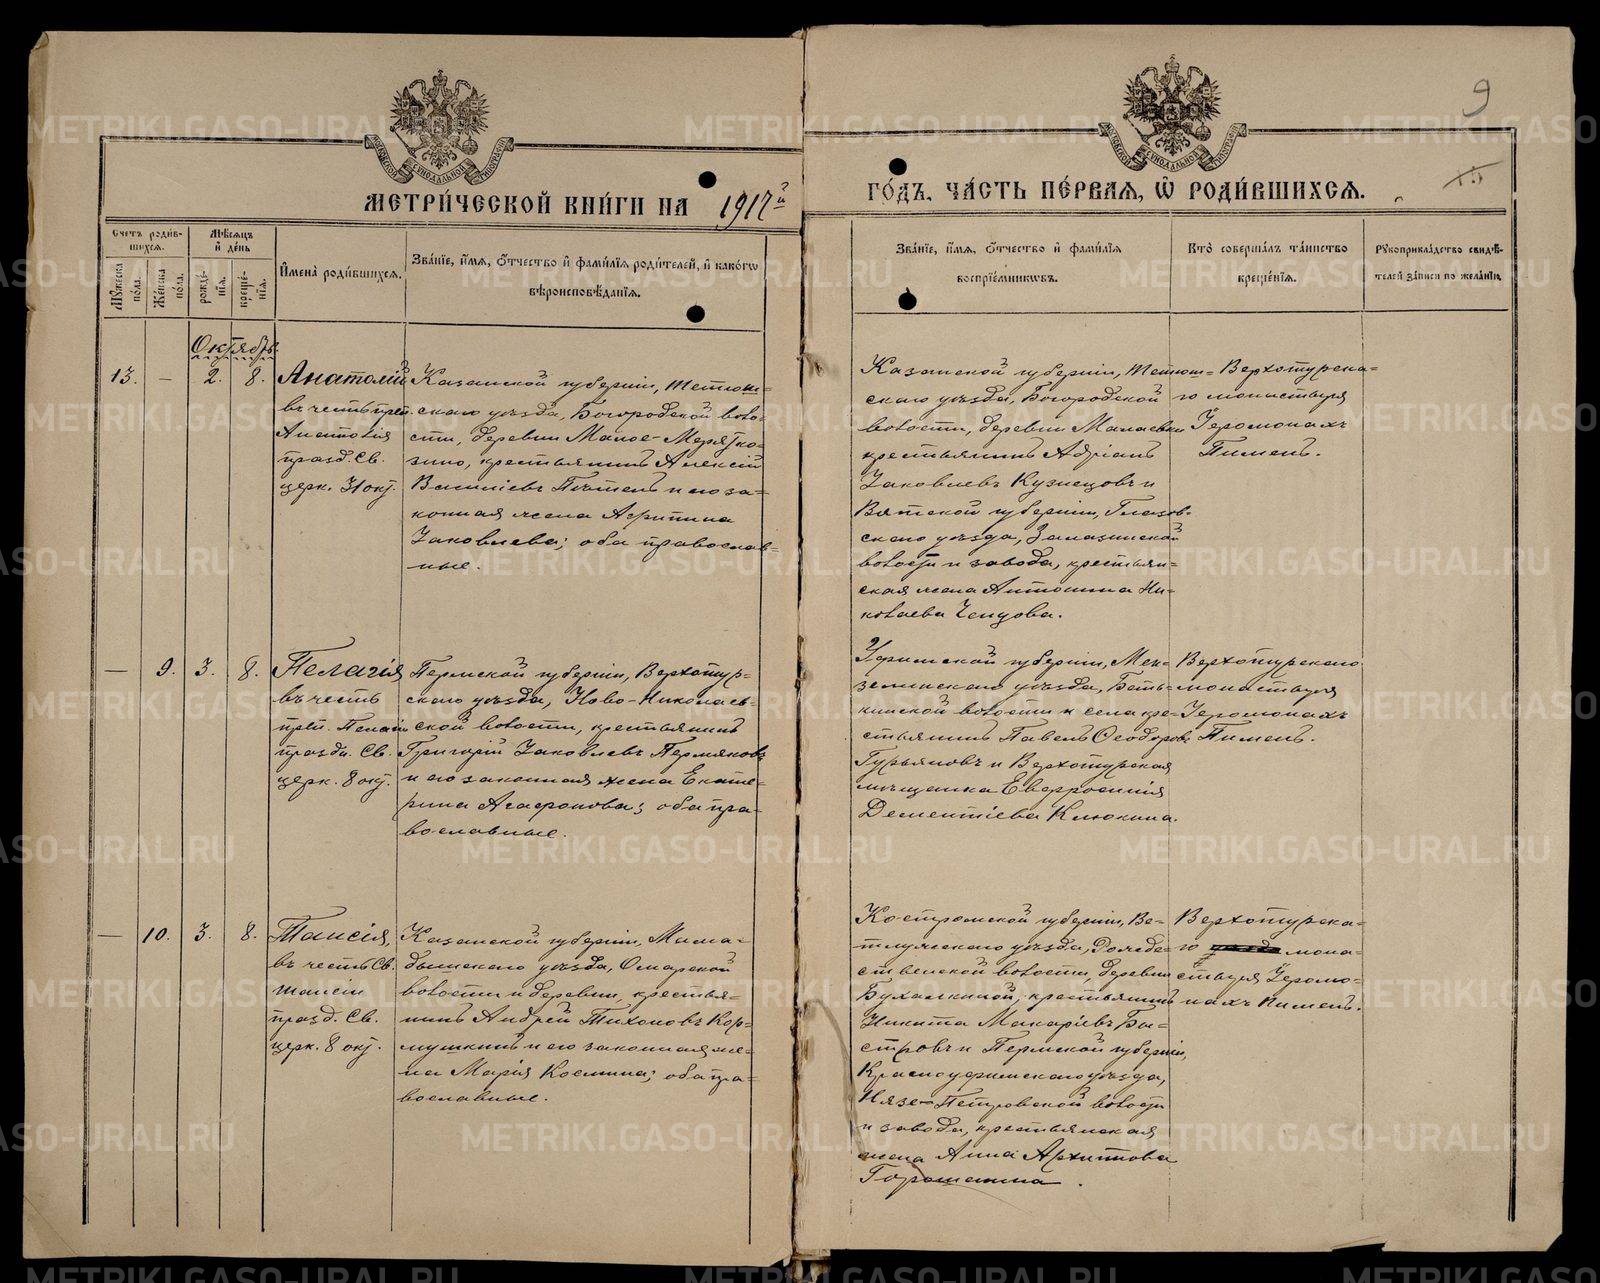 МЕТРИ́ЧЕСКОЙ КНИ́ГИ НА 1917й
ГО́ДЪ, ЧА́СТЬ ПЕ́РВАЯ, Ѡ РОДИ́ВШИХСЯ.
9
Счетъ роди́в-
шихся.
Мѣ́сяцъ
и де́нь
Му́жеска
по́ла.
Же́нска
по́ла.
рожде́-
нїя.
креще́-
нїя.
Имена̀ роди́вшихся.
Зва́нїе, и́мя, ѻ́тчество и фами́лїя роди́телей, и како́гѡ
вѣроисповѣ́данїя.
Зва́нїе, и́мя, ѻ́тчество и фами́лїя
воспрїе́мниковъ.
Кто̀ соверша́лъ та́инство
креще́нїя.
Рукоприкла́дство свидѣ́-
телей за́писи по жела́нїю.
Октябрь.
13.
—
2.
8.
Анатолій
въ честь преп.
Анатолія
празд. Св.
церк. 31 окт.
Казанской губерніи, Тетюш-
скаго уѣзда, Богородской воло-
сти, деревни Малое-Меретко-
зино, крестьянинъ Алексій
Василіевъ Пѣтелъ и его за-
конная жена Агрипина
Іаковлева; оба православ-
ные.
Казанской губерніи, Тетюш-
скаго уѣзда, Богородской
волости, деревни Малаевки
крестьянинъ Адріанъ
Іаковлевъ Кузнецовъ и
Вятской губерніи, Глазов-
скаго уѣзда, Залазинской
волости и завода, крестьян-
ская жена Антонина Ни-
колаева Ченцова.
Верхотурска-
го монастыря
Іеромонахъ
Пименъ.
—
9.
3.
8.
Пелагія
въ честь
преп. Пелагіи
празд. Св.
церк. 8 окт.
Пермской губерніи, Верхотур-
скаго уѣзда, Ново-Николаев-
ской волости, крестьянинъ
Григорій Іаковлевъ Пермяковъ
и его законная жена Екате-
рина Агафонова; оба пра-
вославные.
Уфимской губерніи, Мен-
зелинскаго уѣзда, Бетъ-
кинской волости и села кре-
стьянинъ Павелъ Ѳеодоровъ
Гурьяновъ и Верхотурская
мѣщанка Евфросинія
Дементіева Клюкина.
Верхотурскаго
монастыря
Іеромонахъ
Пименъ.
—
10.
3.
8.
Таисія,
въ честь Св.
Таисіи
празд. Св.
церк. 8 окт.
Казанской губерніи, Мама-
дышскаго уѣзда, Омарской
волости и деревни, крестья-
нинъ Андрей Тихоновъ Кор-
мушкинъ и его законная же-
на Марія Космина; оба пра-
вославные.
Костромской губерніи, Ве-
тлужскаго уѣзда, Рожде-
ственской волости, деревни
Бухалкиной, крестьянинъ
Никита Макаріевъ Бы-
стровъ и Пермской губерніи,
Красноуфимскаго уѣзда,
Нязе-Петровской волости
и завода, крестьянская
жена Анна Архиппова
Горошенина.
Верхотурска-
го мона-
стыря Іеромо-
нахъ Пименъ.
METRIKI.GASO-URAL.RU